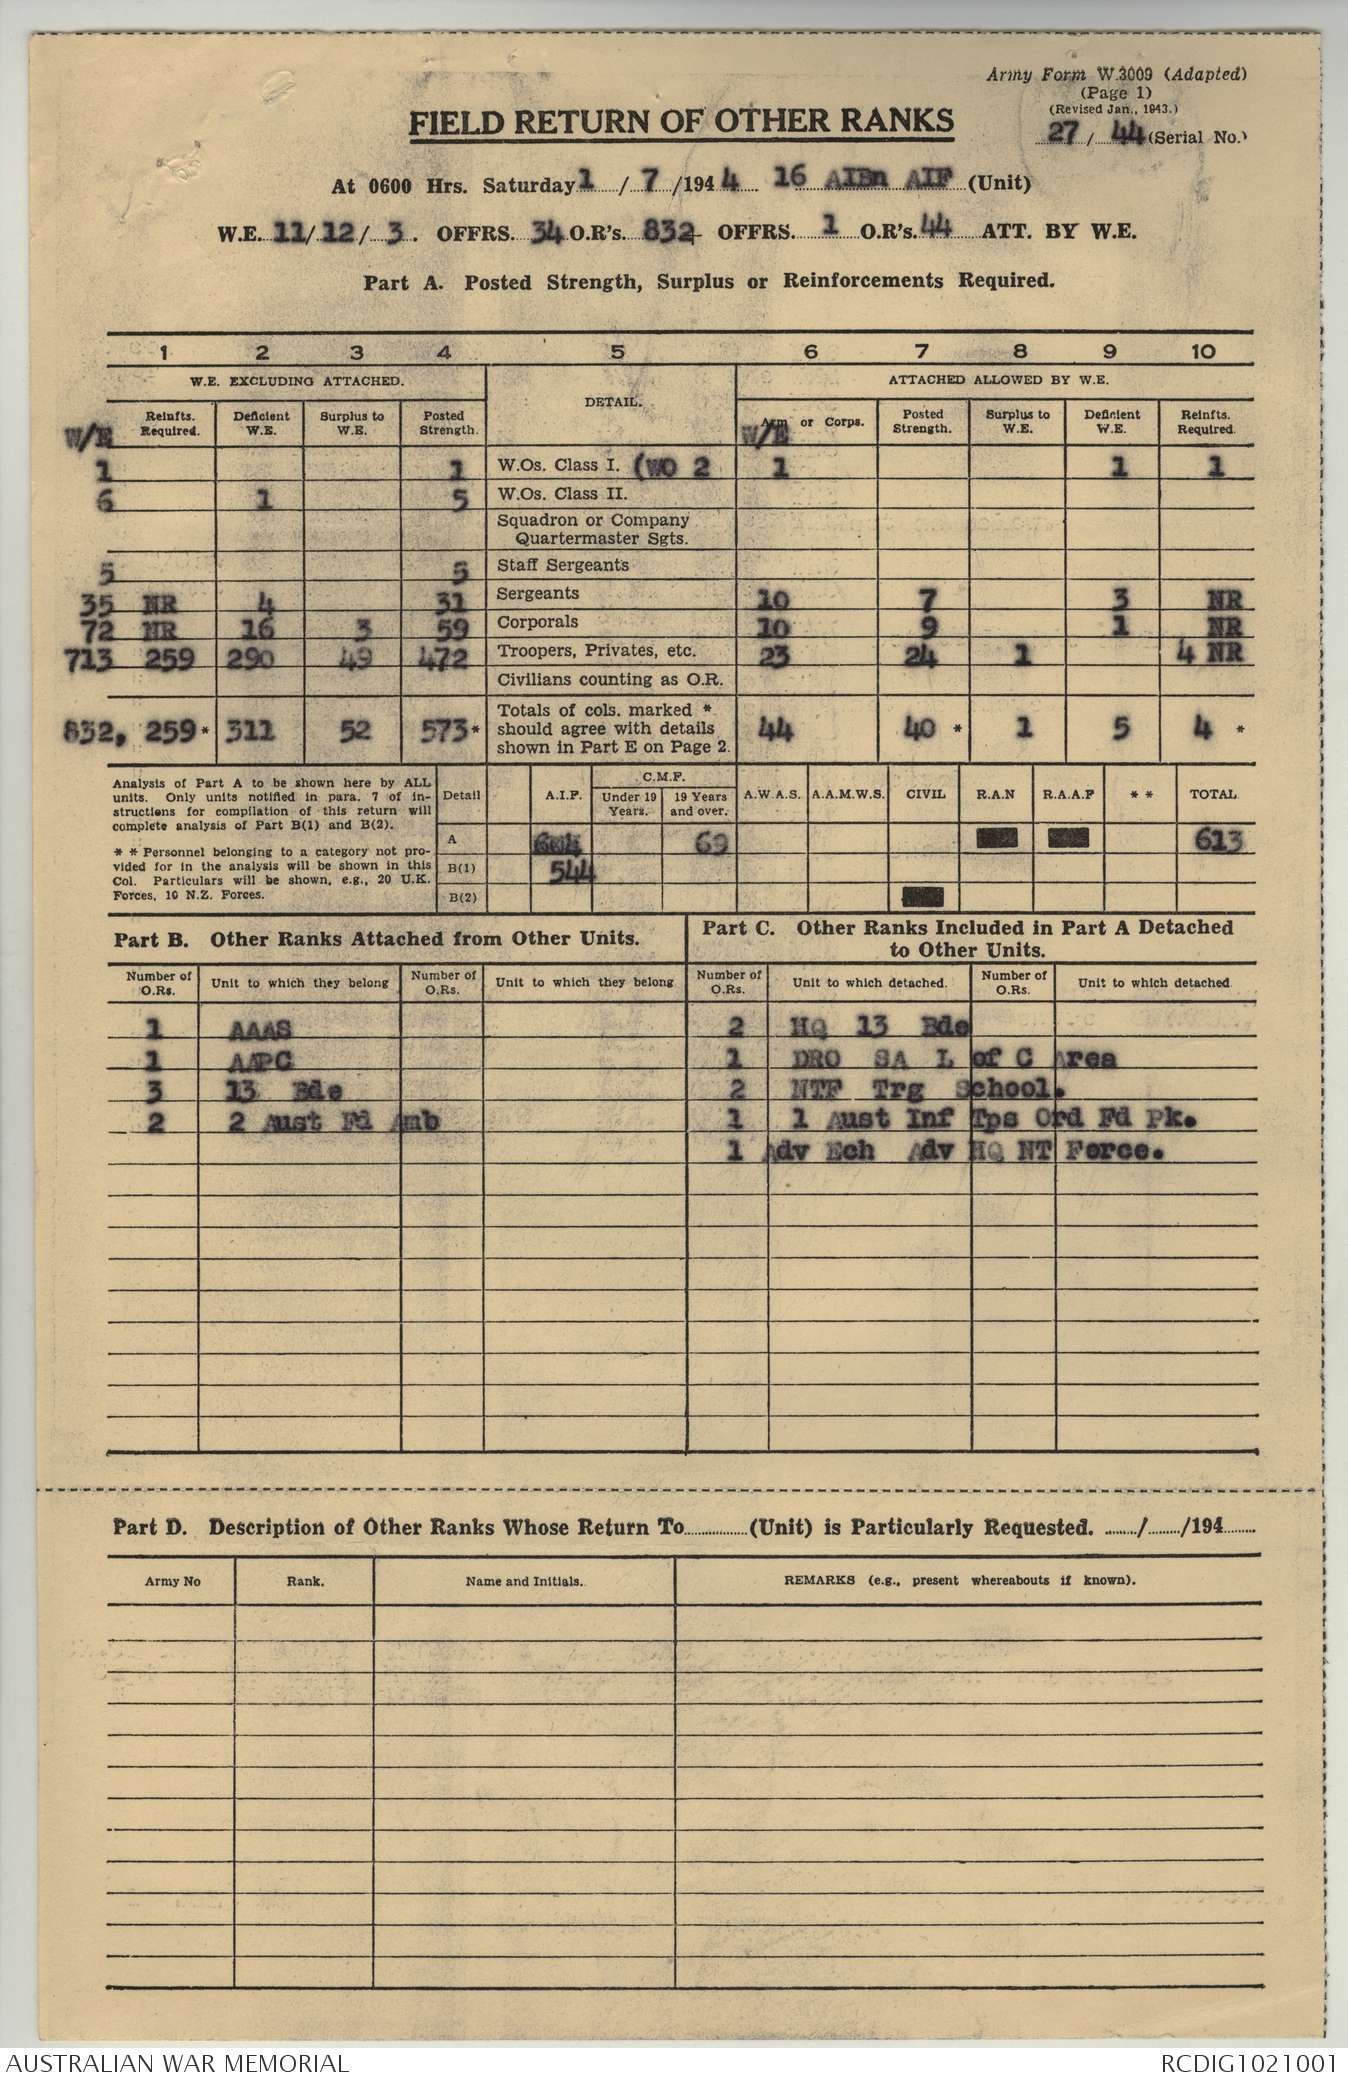 Army Form W.3009 (Adapted)
(Page 1)
(Revised Jan., 1943.)
27 / 44 (Serial No.)
FIELD RETURN OF OTHER RANKS
At 0600 Hrs. Saturday 1 / 7 /194 4 16 AIBn AIF (Unit)
W.E. 11/ 12 / 3 . OFFRS. 34 O.R's. 832 OFFRS. 1 O.R's. 44 ATT. BY W.E.
Part A. Posted Strength, Surplus or Reinforcements Required.
1 2 3 4 5 6 7 8 9 10
W.E. EXCLUDING ATTACHED. DETAIL. ATTACHED ALLOWED BY W.E.
W/E Reinfts. Required. Deficient W.E. Surplus to W.E. Posted Strength. W/E Arm or Corps. Posted Strength. Surplus to W.E. Deficient W.E. Reinfts. Required.
1 1 W.Os. Class I. (WO 2 1 1 1
6 1 5 W.Os. Class II.
Squadron or Company
Quartermaster Sgts.
5 5 Staff Sergeants
35 NR 4 31 Sergeants 10 7 3 NR
72 NR 16 3 59 Corporals 10 9 1 NR
713 259 290 49 472 Troopers, Privates, etc. 23 24 1 4 NR
Civilians counting as O.R.
832, 259 * 311 52 573 * Totals of cols. marked * should agree with details shown in Part E on Page 2. 44 40 * 1 5 4 *
Analysis of Part A to be shown here by ALL
units. Only units notified in para. 7 of in-
structions for compilation of this return will
complete analysis of Part B(1) and B(2).
* * Personnel belonging to a category not pro-
vided for in the analysis will be shown in this
Col. Particulars will be shown, e.g., 20 U.K.
Forces, 10 N.Z. Forces.
Detail A.I.F. C.M.F. Under 19 Years. 19 Years and over. A.W.A.S. A.A.M.W.S. CIVIL R.A.N R.A.A.F * * TOTAL
A 69 613
B(1) 544
B(2)
Part B. Other Ranks Attached from Other Units.
Number of O.Rs. Unit to which they belong Number of O.Rs. Unit to which they belong
1 AAAS
1 AAPC
3 13 Bde
2 2 Aust Fd Amb
Part C. Other Ranks Included in Part A Detached
to Other Units.
Number of O.Rs. Unit to which detached. Number of O.Rs. Unit to which detached
2 HQ 13 Bde
1 DRO SA L of C Area
2 NTF Trg School.
1 1 Aust Inf Tps Ord Fd Pk.
1 Adv Ech Adv HQ NT Force.
Part D. Description of Other Ranks Whose Return To............(Unit) is Particularly Requested. ......../......../194........
Army No Rank. Name and Initials. REMARKS (e.g., present whereabouts if known).
AUSTRALIAN WAR MEMORIAL RCDIG1021001